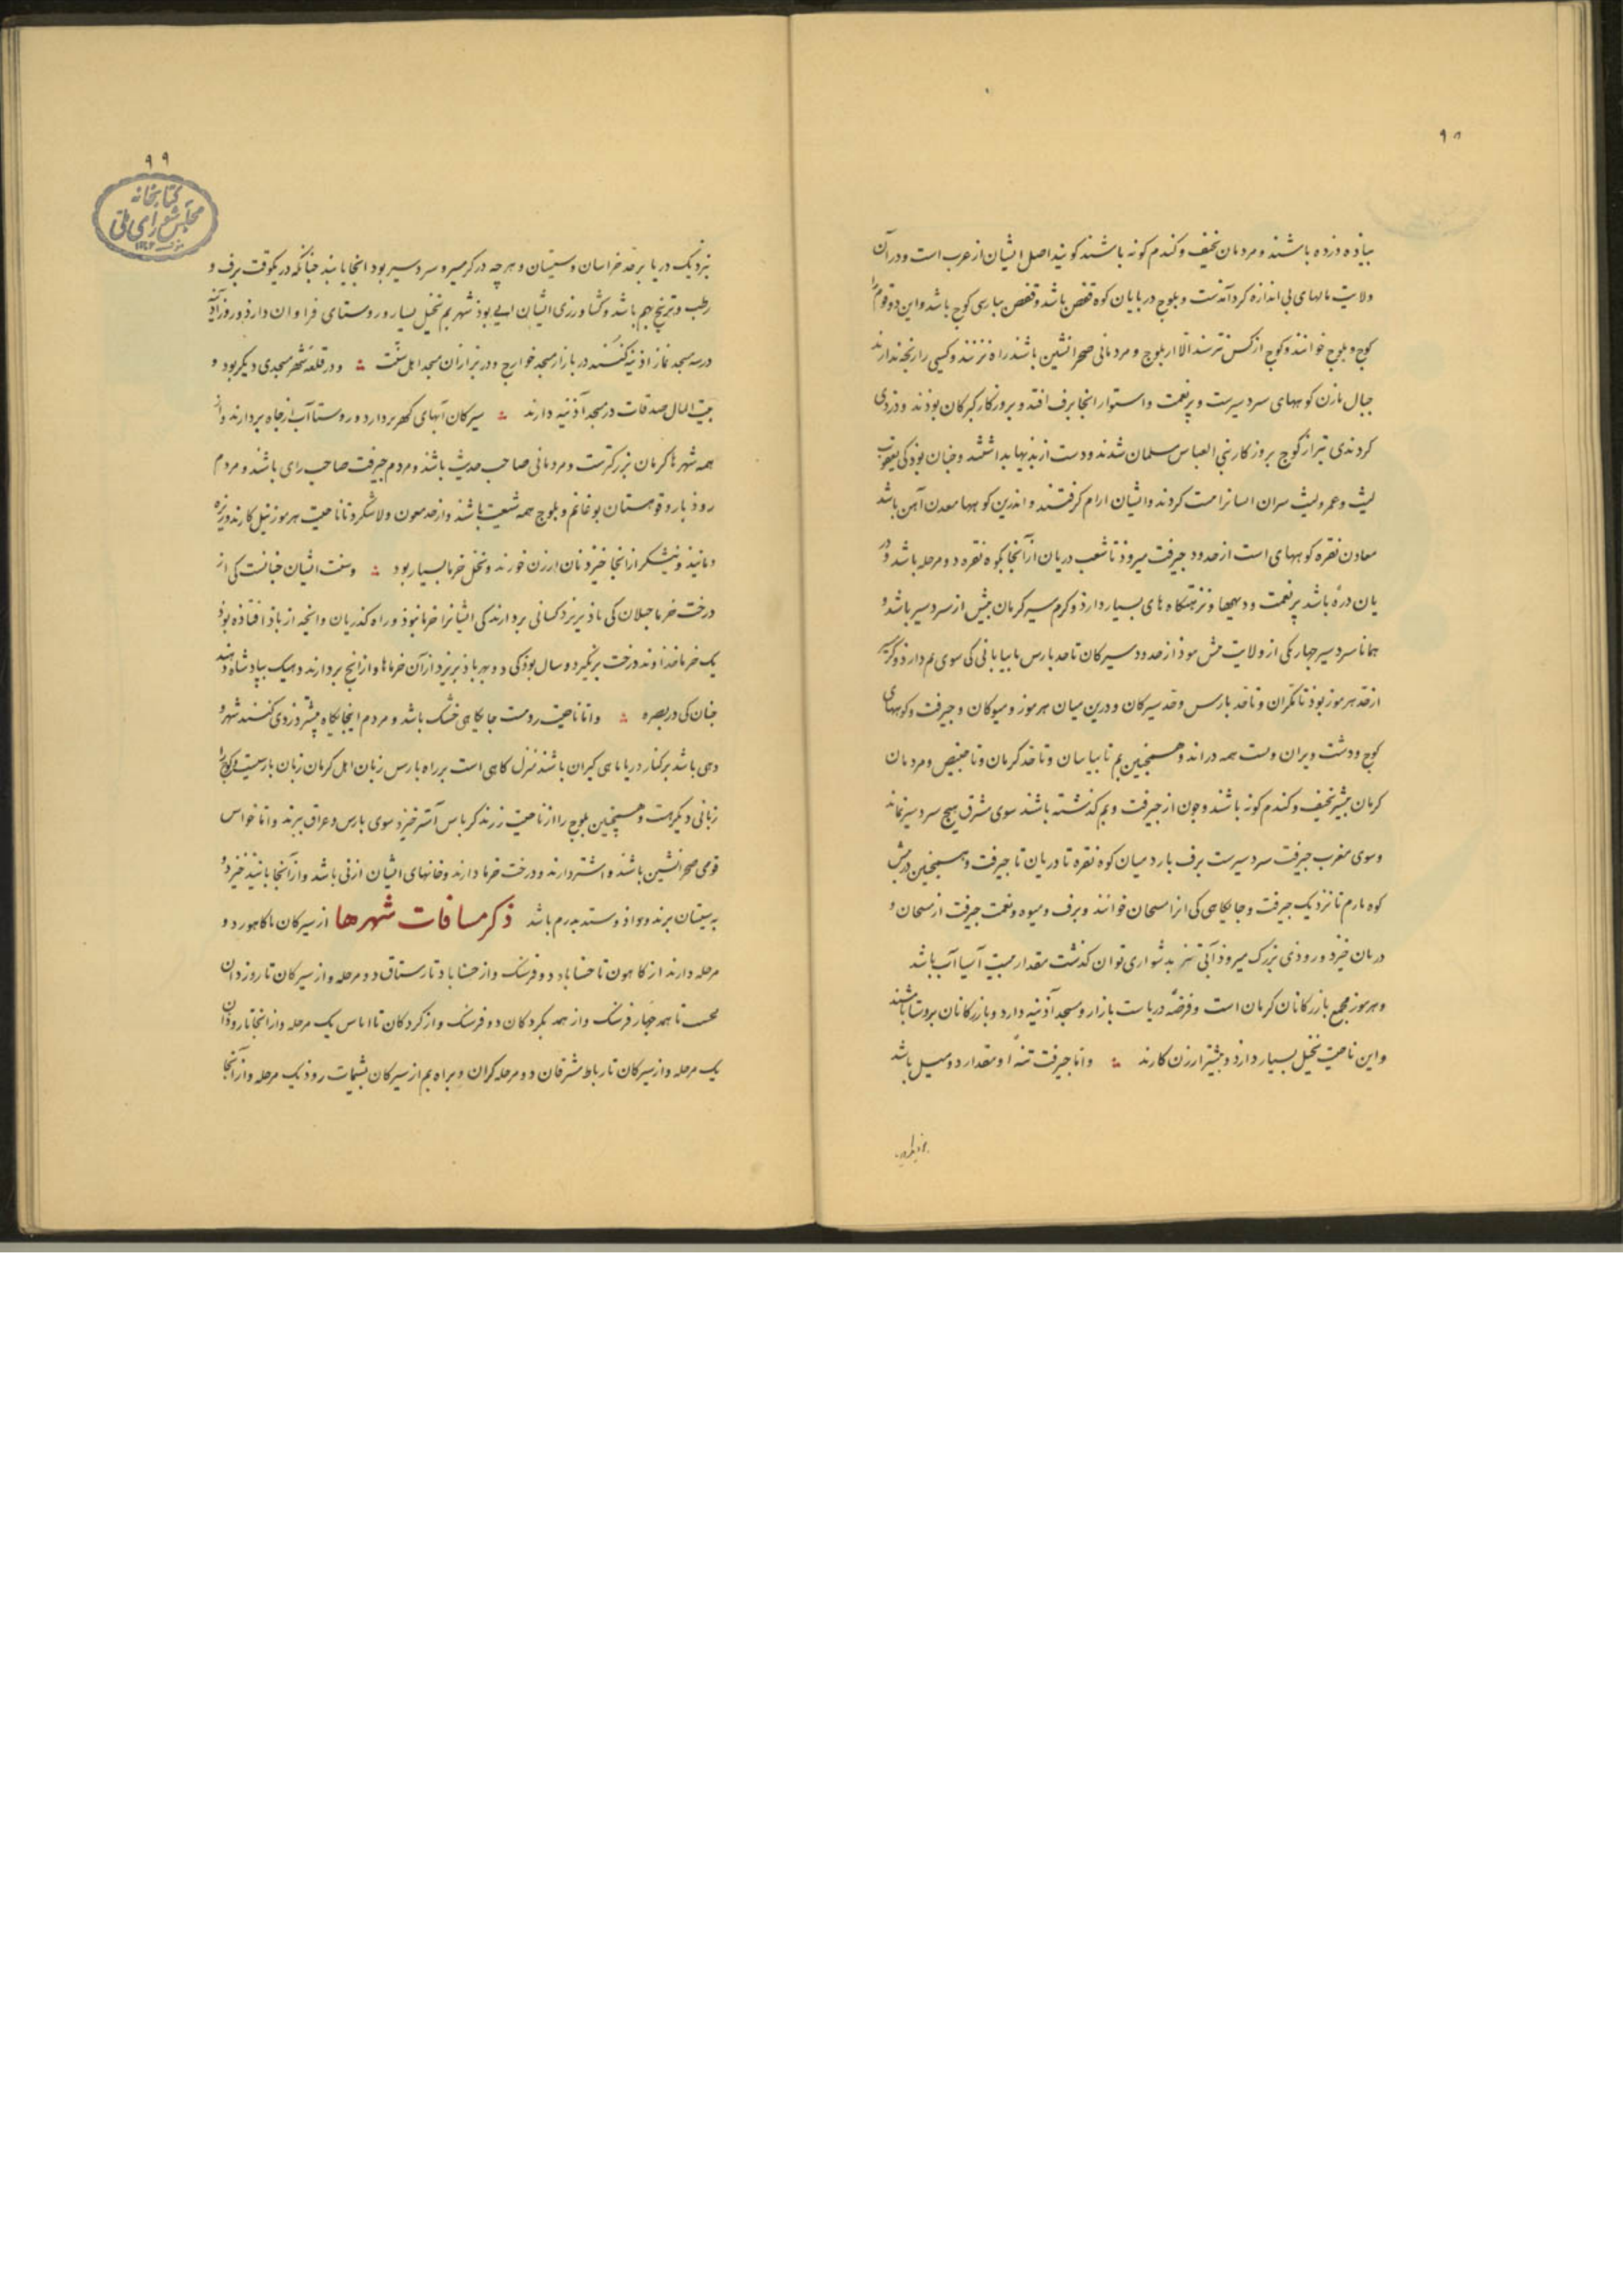 ۹۸
بیاذه دزده باشند و مردمان نحیف و کندم کونه باشند کویند اصل ایشان از عرب است و در آن
ولایت مالهای بی اندازه کرد آمدست و بلوج در بایان کوه قفص باشد و قفص بپارسی کوج باشد و این دو قوم را
کوج و بلوج خوانند و کوج از کس نترسند الا از بلوج و مردمانی صحرا نشین باشند راه نزنند و کسی را رنجه ندارند
جبال بارز کوههای سردسیرست و پرنعمت و استوار انجا برف افتد و بروزکار کبرکان بوذند و دزدی
کردندی بتر از کوج بروزکار بنی العباس مسلمان شدند و دست از بذیها بداشتند و جنان بوذ کی یعقوب
لیث و عمرو لیث سران ایشانرا مت کردند و ایشان ارام کرفتند و اندرین کوهها معدن آهن باشد
معادن نقره کوههای است از حدود جیرفت میروذ تا شعب دربان از آنجا بکوه نقره دو مرحله باشد و در
بان درهٔ باشد پرنعمت و دیهها و نزهتکاه های بسیار دارذ و کرم سیر کرمان بیش از سردسیر باشد و
همانا سردسیر جهار یکی از ولایت بیش موذ از حدود سیرکان تا حد بارس تا بیابانی کی سوی بم دارذ و کرمسیر
از حد هرموز بوذ تا مکران و تا حد بارس و حد سیرکان و درین میان هرموز و میوکان و جیرفت و کوههای
کوج و دشت ویران و لست همه در اند و همجنین بم تا بیابان و تا حد کرمان و تا خبیص و مردمان
کرمان بیشتر نحیف و کندم کونه باشند و جون از جیرفت و بم کذشته باشند سوی مشرق هیج سردسیر نماند
و سوی مغرب جیرفت سردسیرست برف بارد میان کوه نقره تا دربان تا جیرفت و همجنین در پیش
کوه بارم تا نزدیک جیرفت و جایکاهی کی انرا میحان خوانند و برف و میوه و نعمت جیرفت از میحان و
دربان خیزد و رودی بزرک میروذ آبی تیز بدشواری توان کذشت مقدار بیست آسیا آب باشد
و هرموز مجمع بازرکانان کرمان است و فرضهٔ دریاست بازار و مسجد آذینه دارد و بازرکانان بروستاها باشند
و این ناحیت نخیل بسیار دارد و بیشتر ارزن کارند و اما جیرفت تنهٔ او مقدار دو میل باشد
۹۹
کتابخانه
مجلس شورای ملی
نزدیک دریا بر حد خراسان و سیستان و هر چه در کرمسیر و سردسیر بود انجا یابند جنانکه در یکوقت برف و
رطب و ترنج بهم باشد و کشاورزی ایشان ابی بوذ شهر بم نخیل بسیار و روستای فراوان دارذ و روز آذینه
در سه مسجد نماز آذینه کنند در بازار مسجد خوارج و در بزازان مسجد اهل سنت و در قلعهٔ شهر مسجدی دیکر بود و
بیت المال صدقات در مسجد آذینه دارند سیرکان آبهای کهریز دارد و روستا آب از جاه بردارند و از
همه شهرها کرمان بزرکترست و مردمانی صاحب حدیث باشند و مردم جیرفت صاحب رای باشند و مردم
روذبار و قوهستان بوغانم و بلوج همه شیعت باشند و از حد مغون و ولاشکرد تا ناحیت هرموز نیل کارند و زیره
و بانیذ و نیشکر از انجا خیزد نان ارزن خورند و نخل خرما بسیار بود و سنت ایشان جنانست کی از
درخت خرما جیلان کی باذ بریزد کسانی بردارند کی ایشانرا خرما نبوذ و راه کذریان و انچه از باذ افتاذه بوذ
یک خرما خذاوند درخت برنکیرد و سال بوذ کی دو بهر باذ بریزد از آن خرماها و از انج بردارند دهیک ببادشاه دهند
جنان کی در بصره و اما ناحیت رومت جایکاهی خشک باشد و مردم اینجایکاه بیشتر دزدی کنند شهر و
دهی باشد بر کنار دریا ماهی کیران باشند منزل کاهی است بر راه بارس زبان اهل کرمان زبان بارسیست و کوج را
زبانی دیکرست و همجنین بلوج را از ناحیت زرند کرباس آستر خیزد سوی بارس و عراق برند و اما خواس
قومی صحرا نشین باشند و اشتر دارند و درخت خرما دارند و خانهای ایشان از نی باشد و از آنجا بانیذ خیزد و
به سیستان برند و داذ و ستد بدرم باشد ذکر مسافات شهرها از سیرکان تا کاهون دو
مرحله دارند از کاهون تا حشاباد دو فرسنک و از حشاباد تا رستاق دو مرحله و از سیرکان تا روزدان
تا همد جهار فرسنک و از همد بکردکان دو فرسنک و از کردکان تا اناس یک مرحله و از انجا تا روذان
یک مرحله و از سیرکان تا رباط مشرقان دو مرحله کران و براه بم از سیرکان بشمات روذ یک مرحله و از آنجا